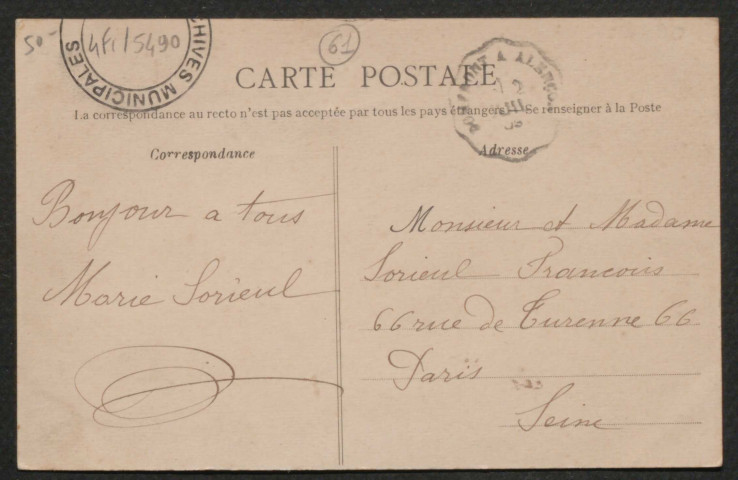 50-
4Fi/5490
CHIVES MUNICIPALES
61
CARTE POSTALE
La correspondance au recto n'est pas acceptée par tous les pays étrangers. Se renseigner à la Poste
Correspondance
Bonjour a tous
Marie Sorieul
Adresse
Monsieur et Madame
Sorieul Francois
66 rue de Turenne 66
Paris
Seine